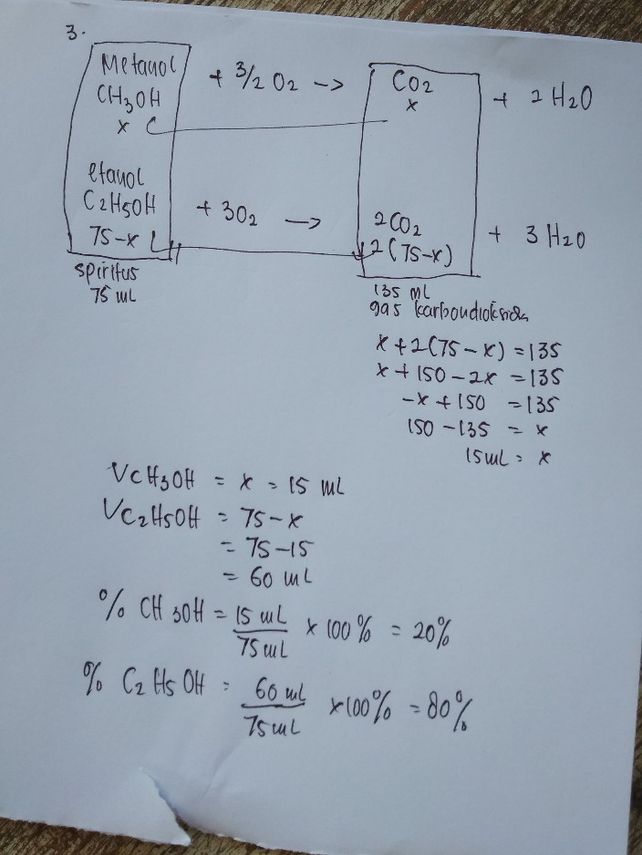 3.
Metanol + 3/2 O2 –> CO2 + 2 H2O
CH3OH x
x
etanol
C2H5OH + 3O2 –> 2CO2 + 3 H2O
75-x 2(75-x)
spiritus 135 ml
75 mL gas karbondioksida
x + 2(75 - x) = 135
x + 150 - 2x = 135
-x + 150 = 135
150 - 135 = x
15 mL = x
VCH3OH = x = 15 mL
VC2H5OH = 75-x
= 75-15
= 60 mL
% CH3OH = 15 mL / 75 mL x 100% = 20%
% C2H5OH = 60 mL / 75 mL x 100% = 80%